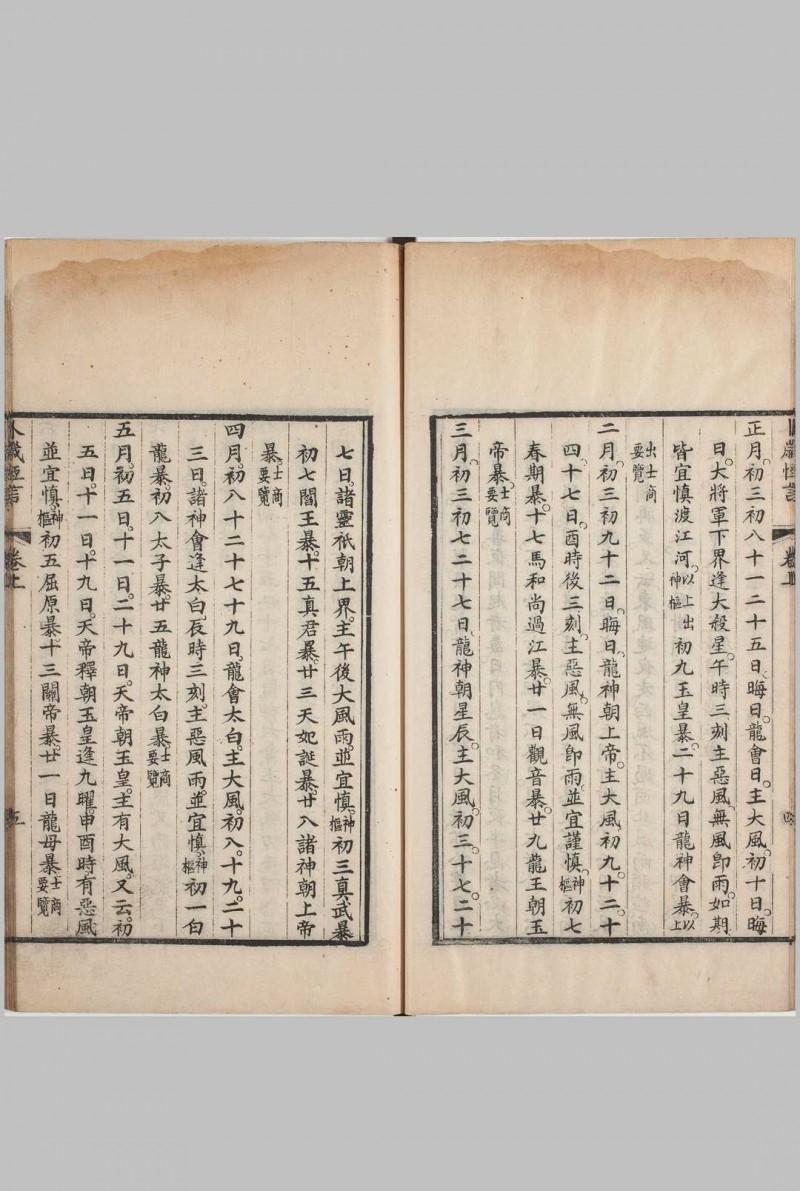 正月初三初八十一二十五日晦日。龍會日。主大風。初十日。晦
日。大將軍下界逢大殺星。午時三刻主惡風。無風卽雨。如期
皆宜慎渡江河。以上出神樞初九玉皇暴。二十九日龍神會暴。以上
出士商要覽
二月初三初九十二日。晦日。龍神朝上帝。主大風。初九。十二。十
四十七日。酉時後三刻。主惡風。無風卽雨。並宜謹慎。神樞初七
春期暴。十七馬和尚過江暴。廿一日觀音暴。廿九龍王朝玉
帝暴。士商要覽
三月初三初七二十七日。龍神朝星辰。主大風。初三。十七。二十
七日。諸靈祇朝上界。主午後大風雨。並宜慎。神樞初三真武暴
初七閻王暴。十五真君暴。廿三天妃誕暴。廿八諸神朝上帝
暴。士商要覽
四月。初八十二十七十九日。龍會太白。主大風。初八。十九。二十
三日。諸神會逢太白。辰時三刻。主惡風雨。並宜慎。神樞初一白
龍暴。初八太子暴。廿五龍神太白暴。士商要覽
五月。初五日。十一日。二十九日。天帝朝玉皇。主有大風。又云。初
五日。十一日。十九日。天帝釋朝玉皇逢九曜。申酉時有惡風
並宜慎。神樞初五屈原暴。十三關帝暴。廿一日龍母暴。士商要覽
卷上
五